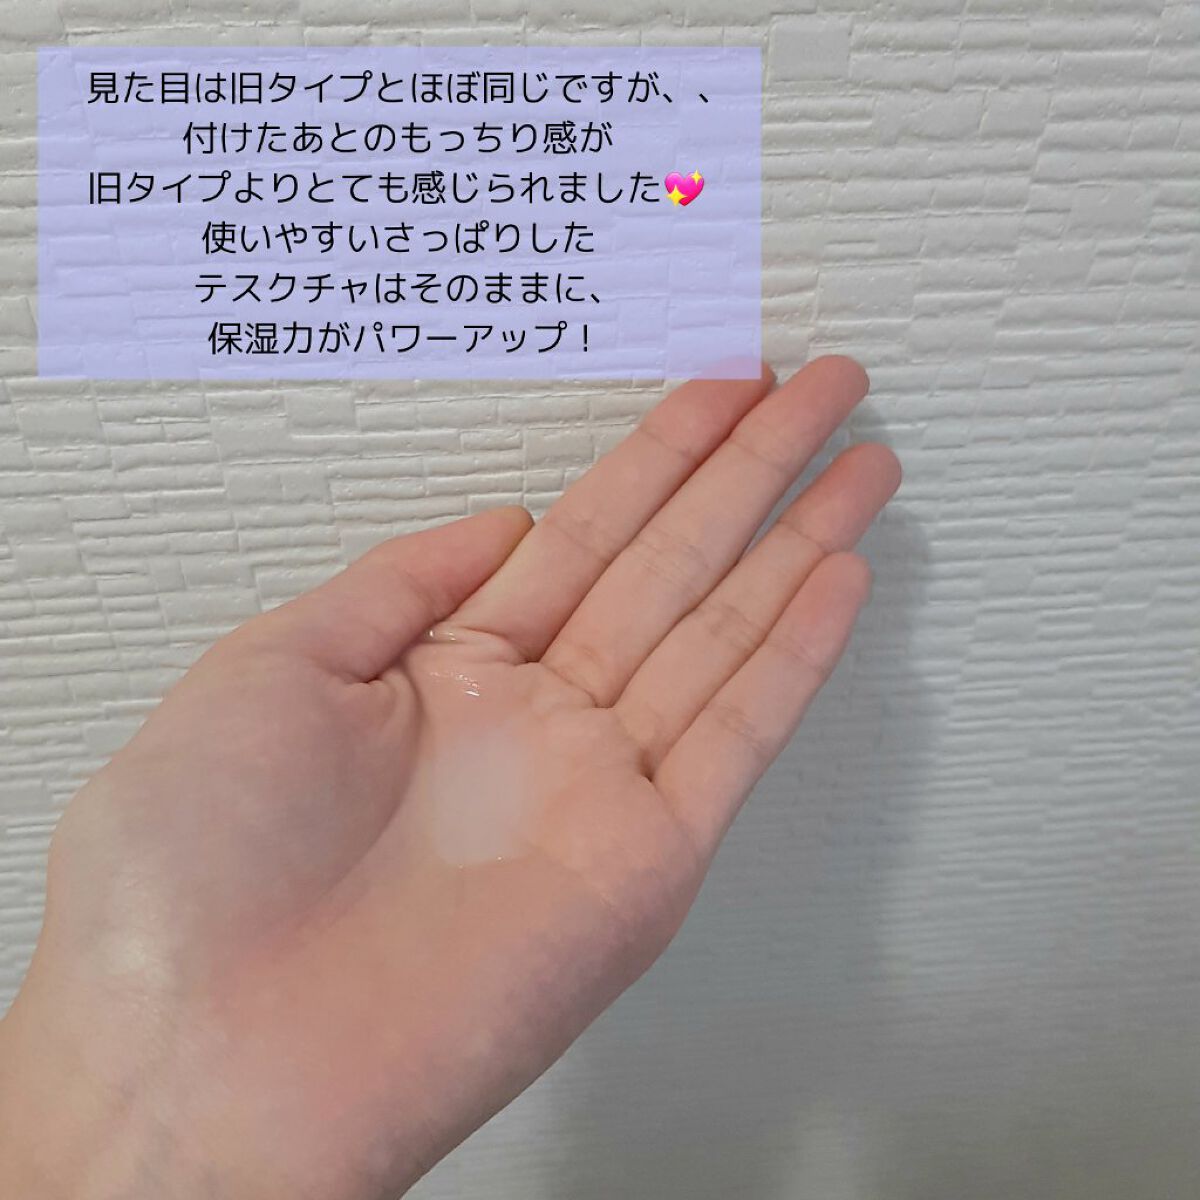 見た目は旧タイプとほぼ同じですが、、
付けたあとのもっちり感が
旧タイプよりとても感じられました💖
使いやすいさっぱりした
テスクチャはそのままに、
保湿力がパワーアップ！